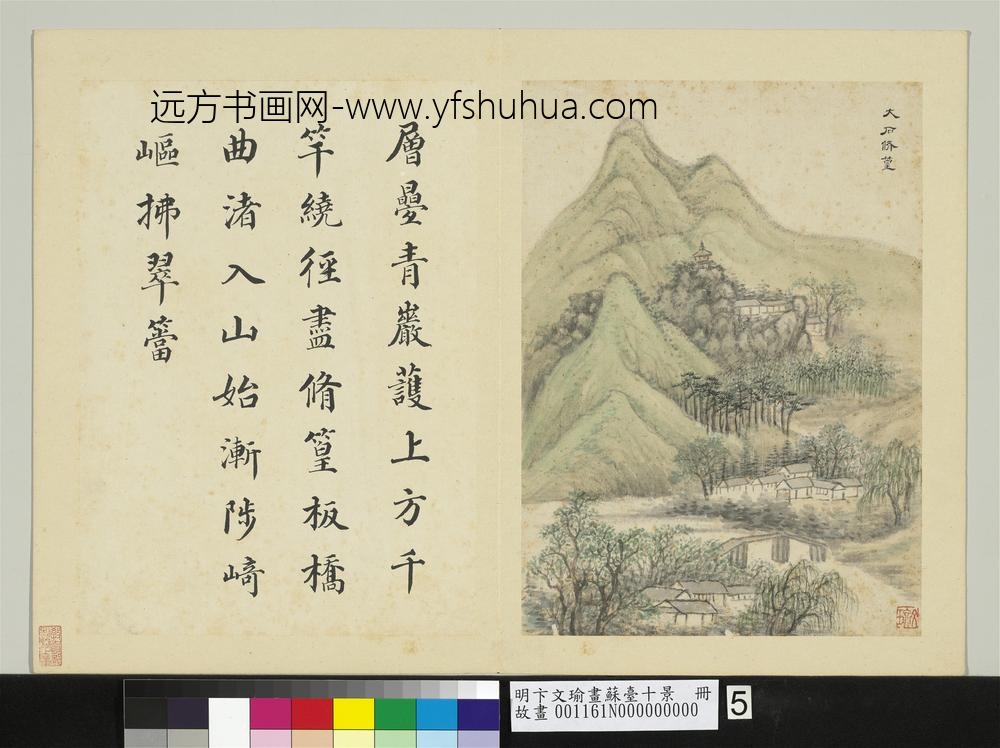 远方书画网-www.yfshuhua.com
大石脩篁
層疊青巖護上方千
竿繞徑盡脩篁板橋
曲渚入山始漸陟崎
嶇拂翠簹
明卞文瑜畫蘇臺十景 冊
故畫 001161N000000000
5